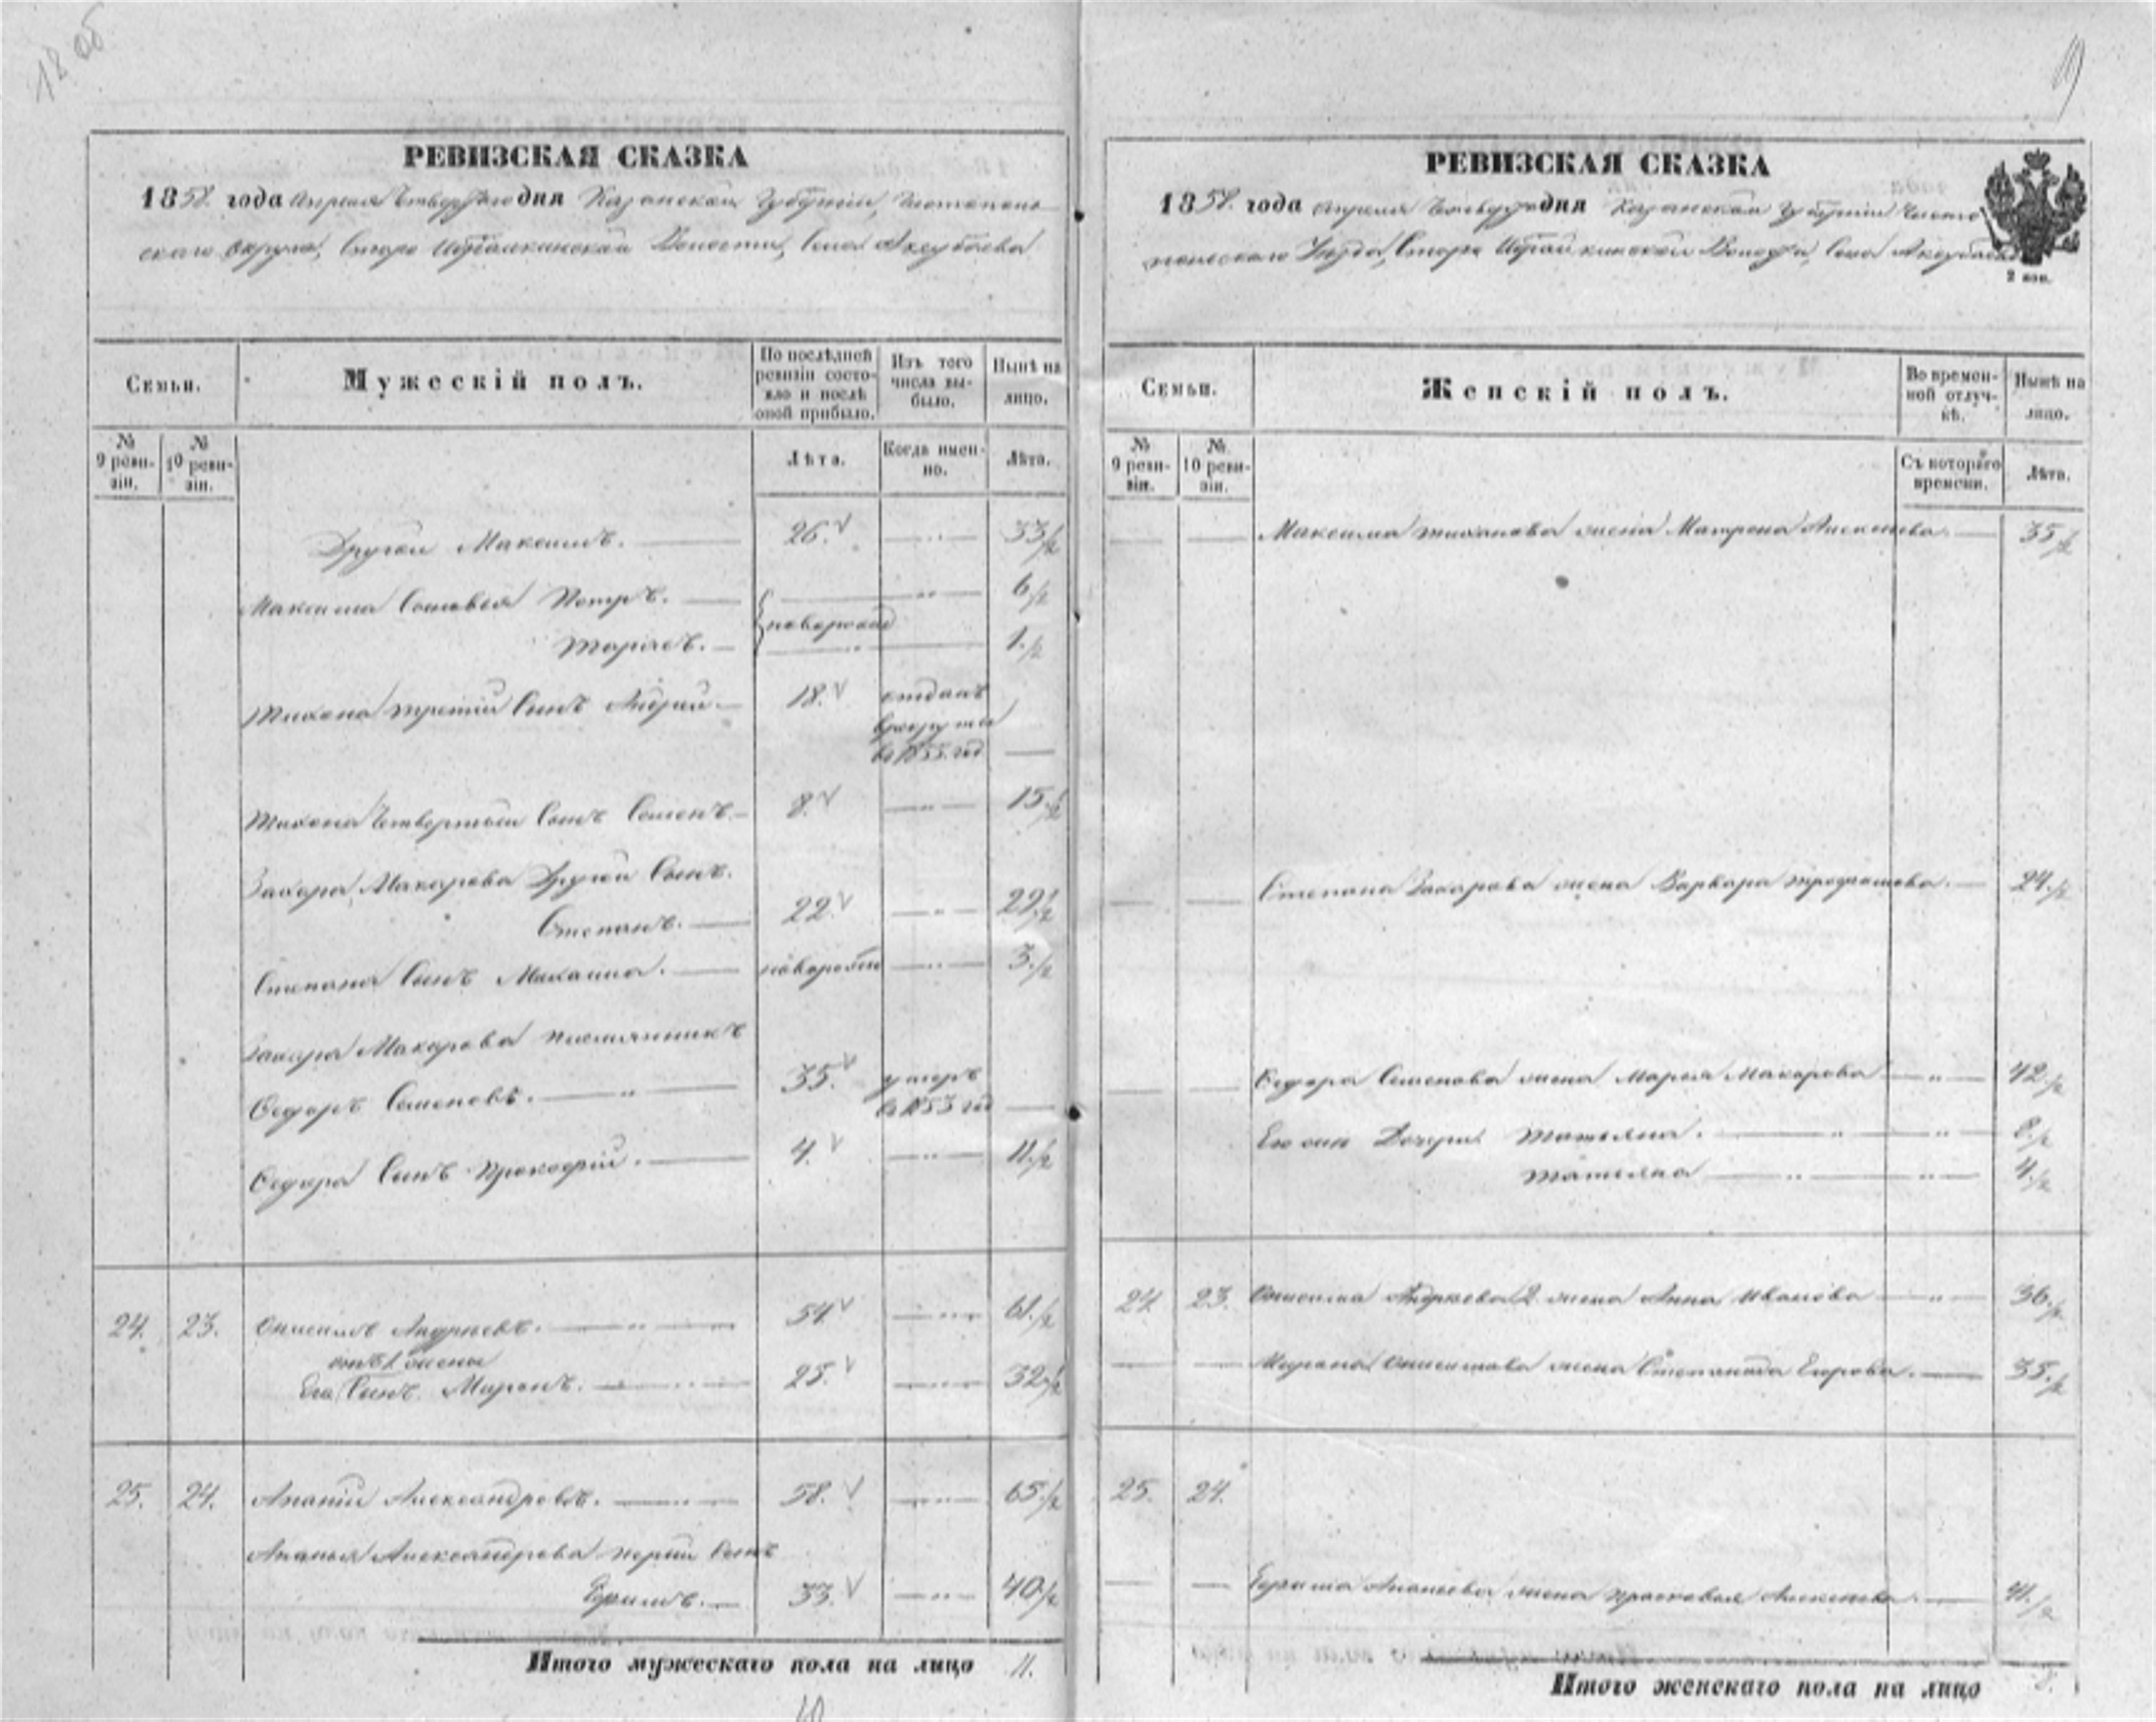 18 об
РЕВИЗСКАЯ СКАЗКА
1858 года Апреля Четвертаго дня Казанской Губернии, Чистополь-
скаго Округа, Старо Волости, Села Аксубаева
Семьи.
Мужескій полъ.
По послѣдней ревизіи состояло и послѣ оной прибыло.
Изъ того числа выбыло.
Нынѣ на лицо.
№ 9 ревизіи.
№ 10 ревизіи.
Лѣта.
Когда именно.
Лѣта.
Другой Максимъ. 26. 33
Максима Сыновья Петръ. 6
новорожд
1.
Тихона третій Сынъ Андрей. 18. отданъ
в рекруты
в 1855 год
Тихона Четвертый Сынъ Семенъ. 8. 15.
Захара Макарова Другой Сынъ.
Степанъ. 22. 29
Степана Сынъ Михаила. новорожд 3.
Захара Макарова племянникъ
Федоръ Семеновъ. 35. умеръ
в 1853 год
Федора Сынъ Прокофій. 4. 11.
24. 23. Онисимъ Андреевъ. 54 61.
отъ 1 жены
Его Сынъ Миронъ. 25. 32.
25. 24. Ананій Александровъ. 58. 65.
Ананья Александрова первый Сынъ
Ефимъ. 33. 40.
Итого мужескаго пола на лицо 11.
19
РЕВИЗСКАЯ СКАЗКА
1858. года Апреля дня Казанской Губерніи Чисто
польскаго Уезда, Старо Села Аксубаева
2 коп.
Семьи.
Женскій полъ.
Во временной отлучкѣ.
Нынѣ на лицо.
№ 9 ревизіи.
№ 10 ревизіи.
Съ котораго времени.
Лѣта.
Максима Тиханова жена Матрена Алексеева 35
Степана Захарова жена Варвара Трофимова. 24.
Федора Семенова жена Марья Макарова 42
Его Дочери Татьяна. 8.
Татьяна 4.
24 23. Онисима Андреева 2 жена Анна Иванова 36.
Мирона Онисимова жена Степанида Егорова. 35.
25. 24.
Ефима Ананьева жена Прасковья Алексеева. 41.
Итого женскаго пола на лицо 8.